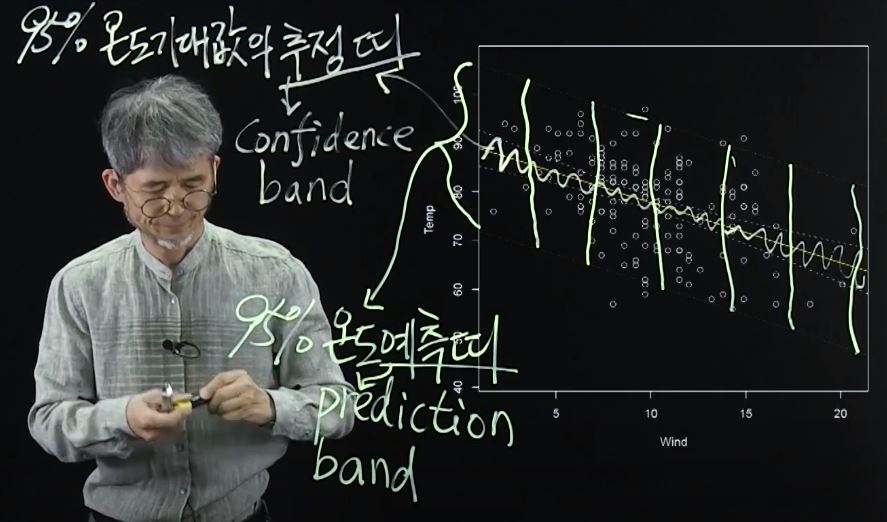 95% 온도기대값의 추정 띠
Confidence
band
95% 온도예측띠
prediction
band
Temp
100
90
80
70
60
50
40
5 10 15 20
Wind